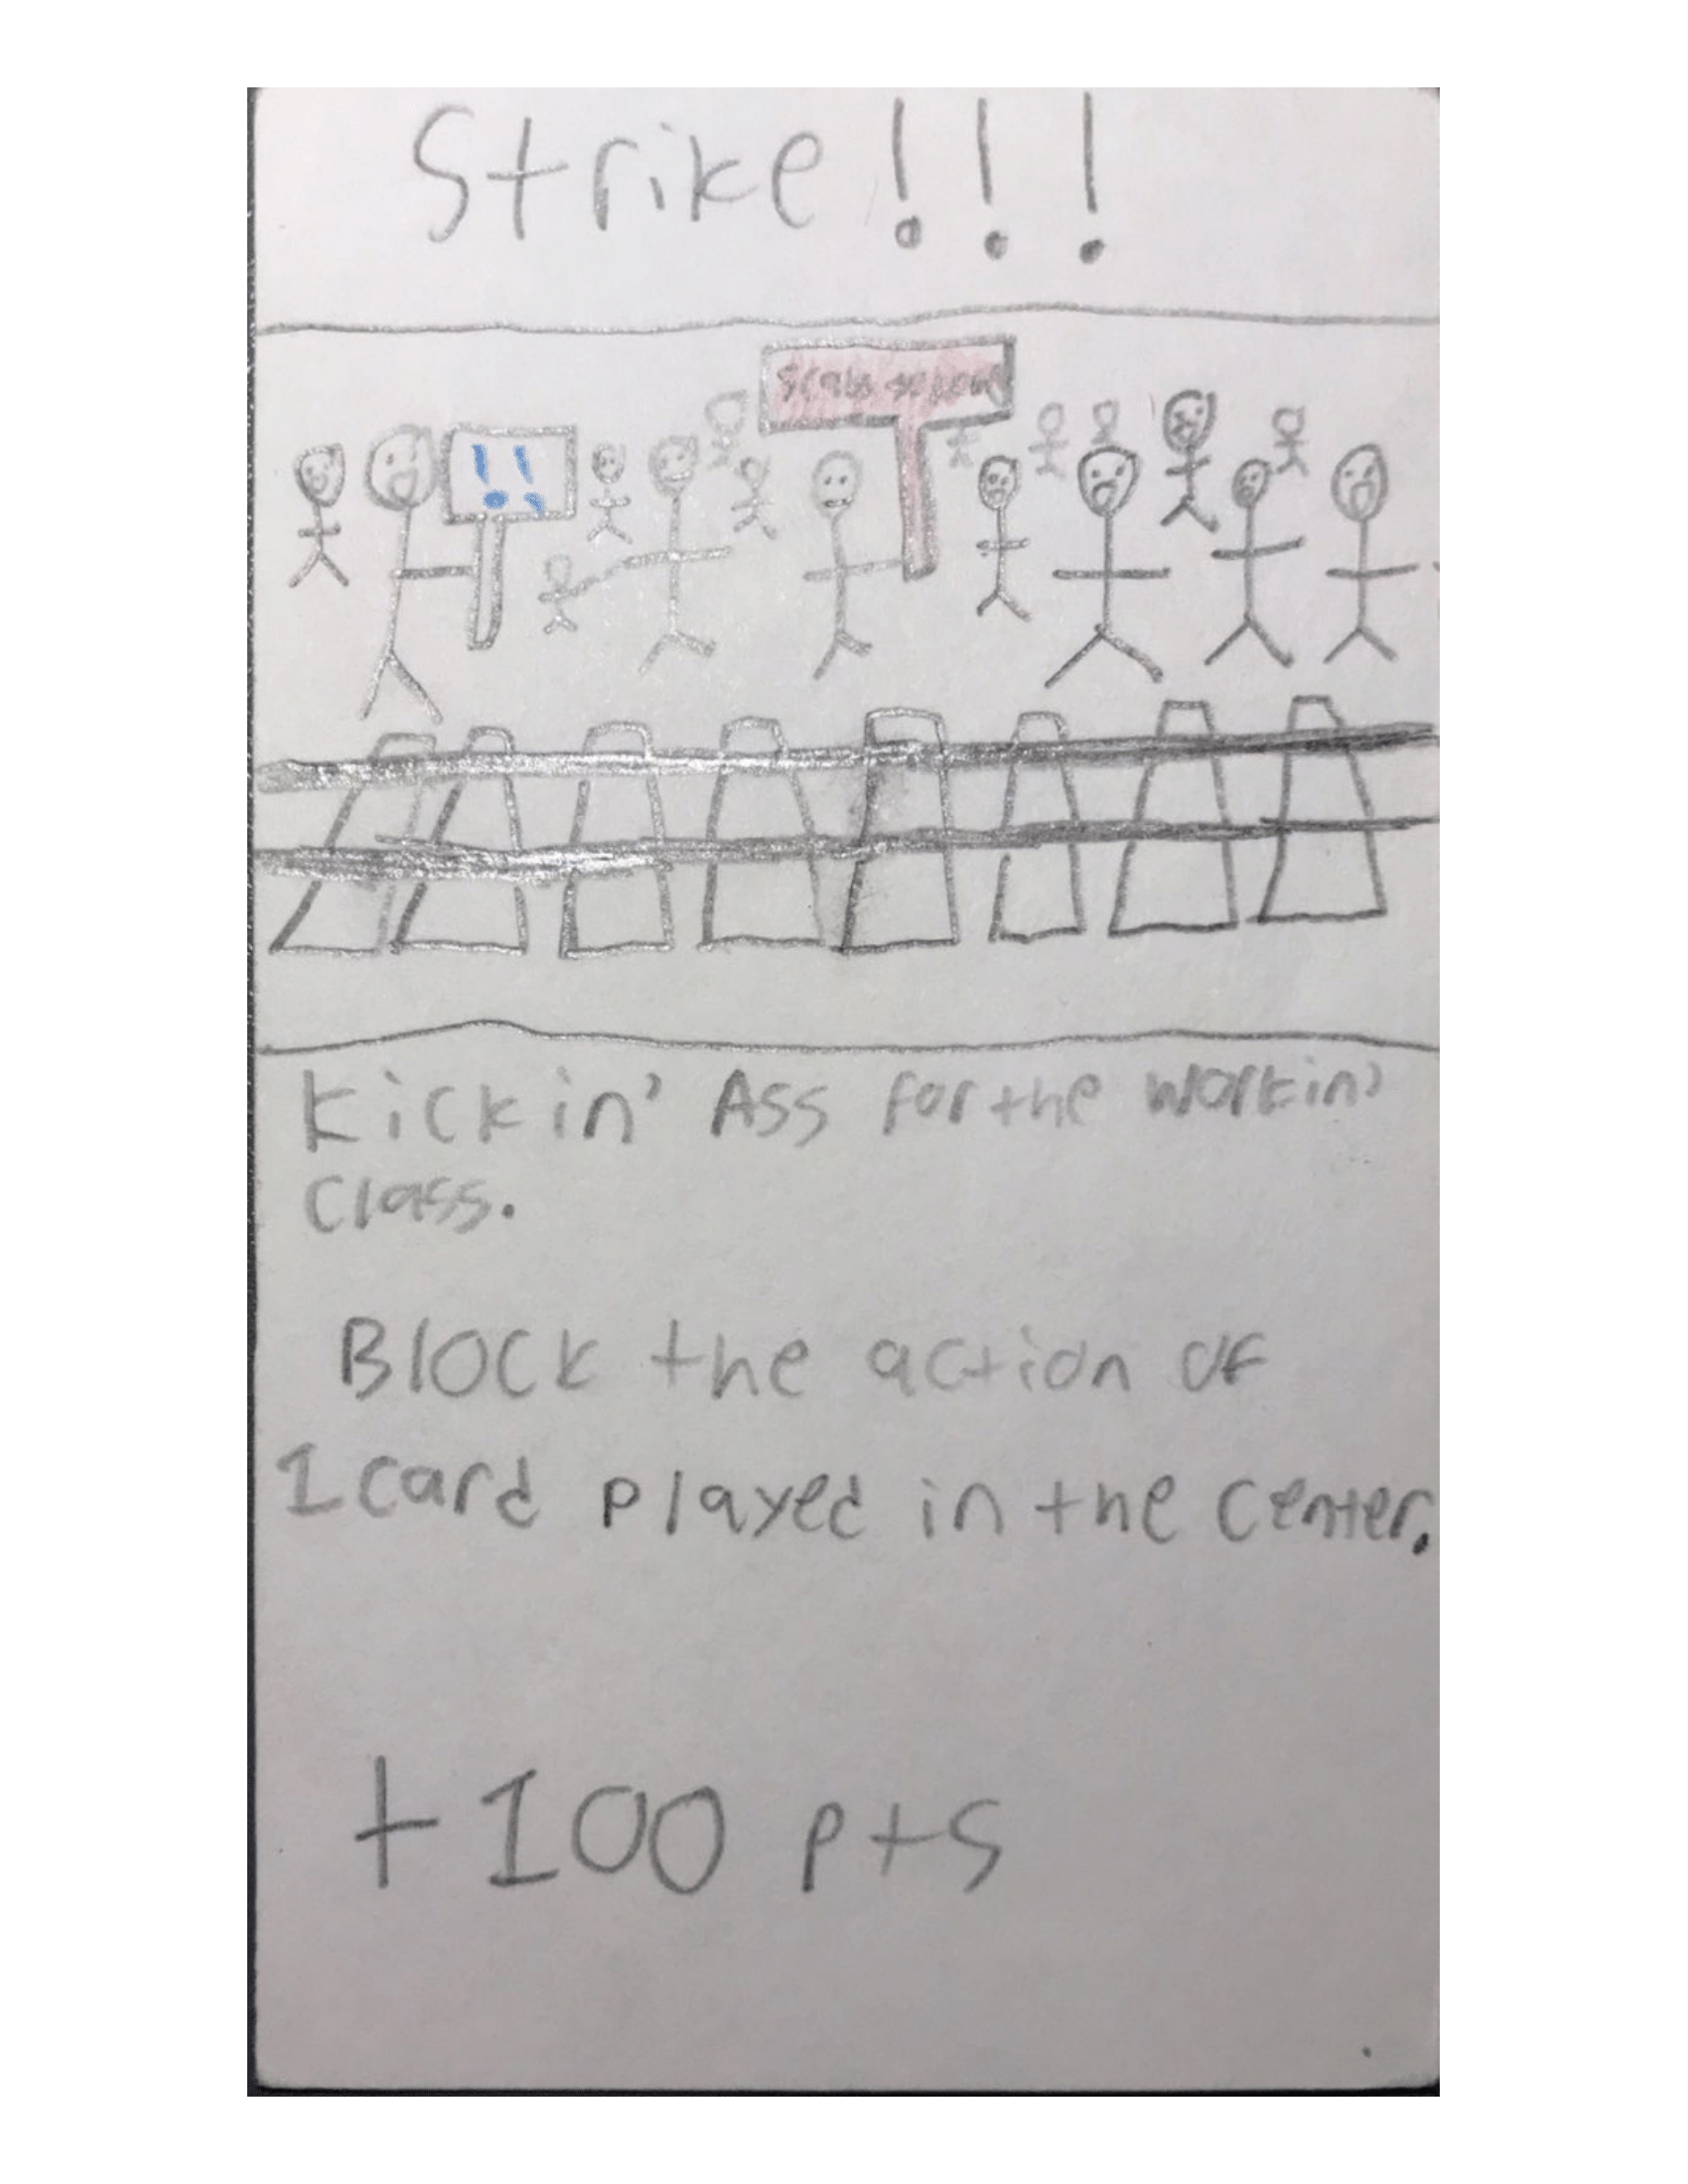 Strike!!!
!!
Scabs
Kickin' Ass for the workin'
Class.
Block the action of
1 card played in the center.
+100 pts